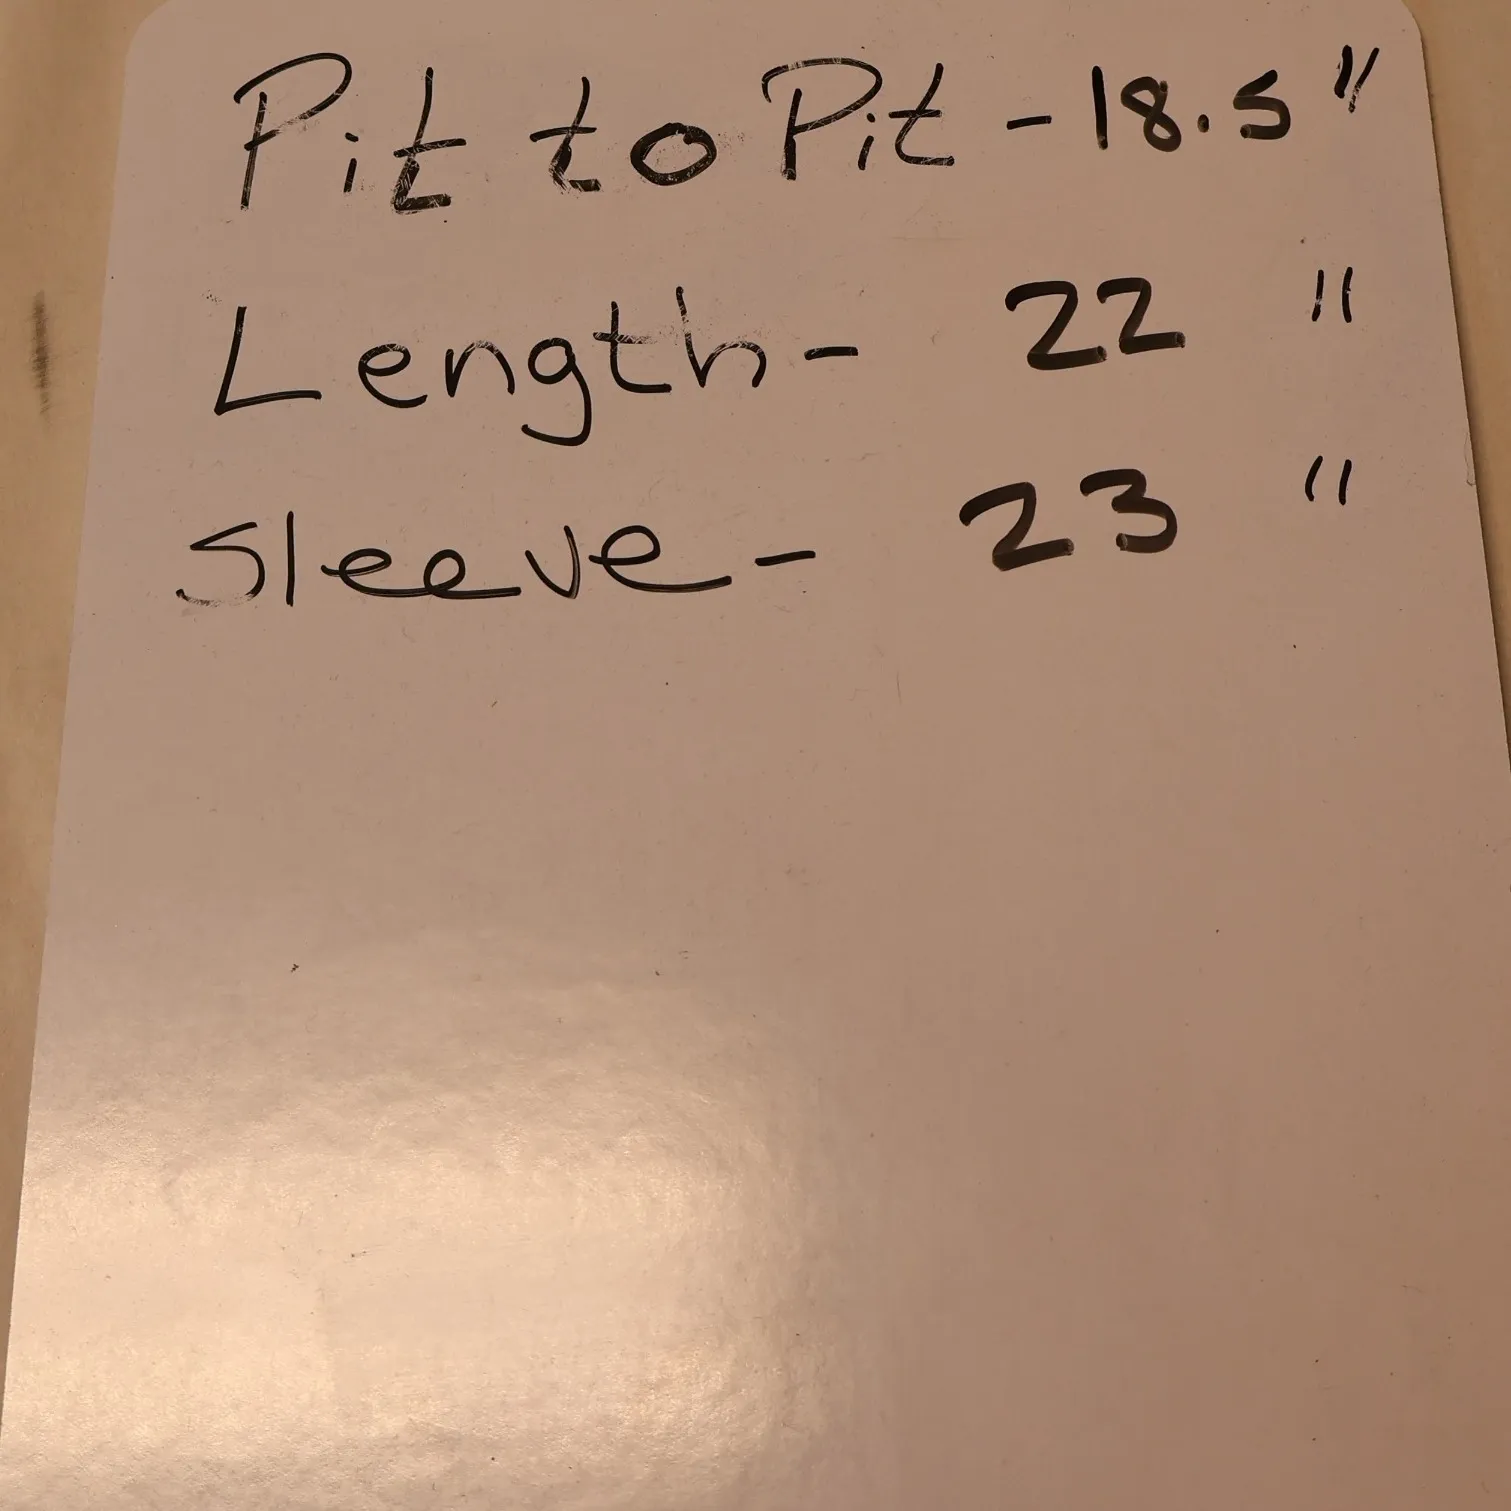 Pit to Pit - 18.5"
Length - 22"
Sleeve - 23"